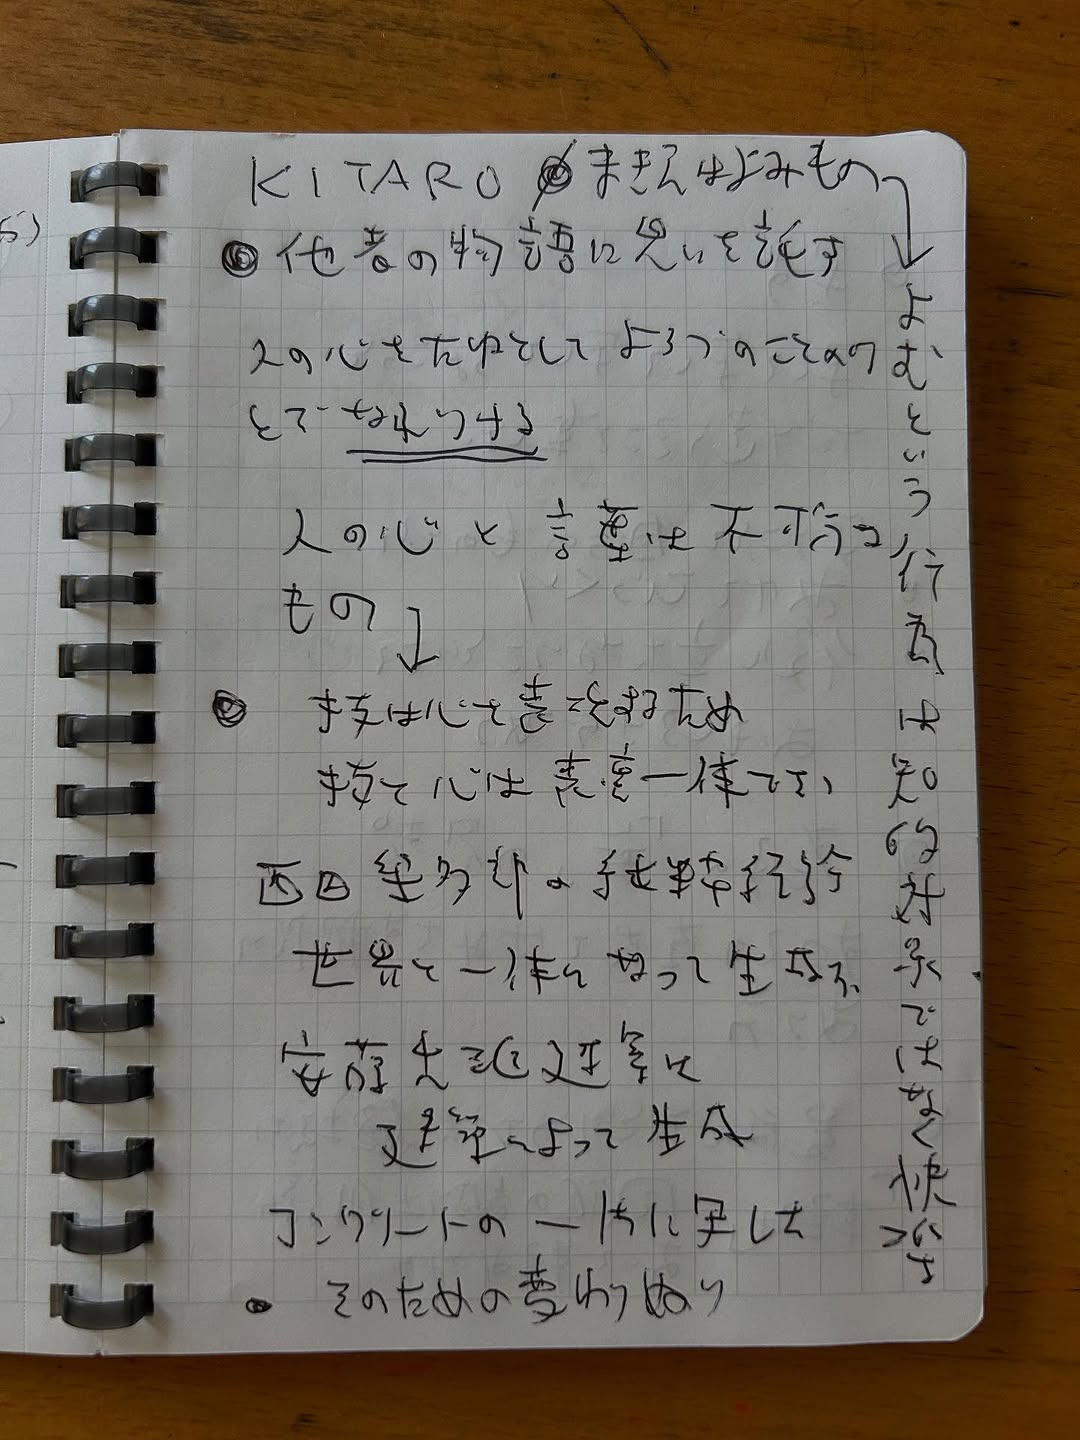 KITARO まきんはよみもの
他者の物語に思いを託す
人の心をたねとして よろづのことのは
とぞなれりける
人の心と言葉は不可分な
もの
技は心を表現するため
技と心は表裏一体でない
西田幾多郎の純粋経験
世界と一体となって生成
安藤忠雄 建築は
建築によって生成
コンクリートの一片に
そのための夢
よむという行為は知的対象ではなく快楽